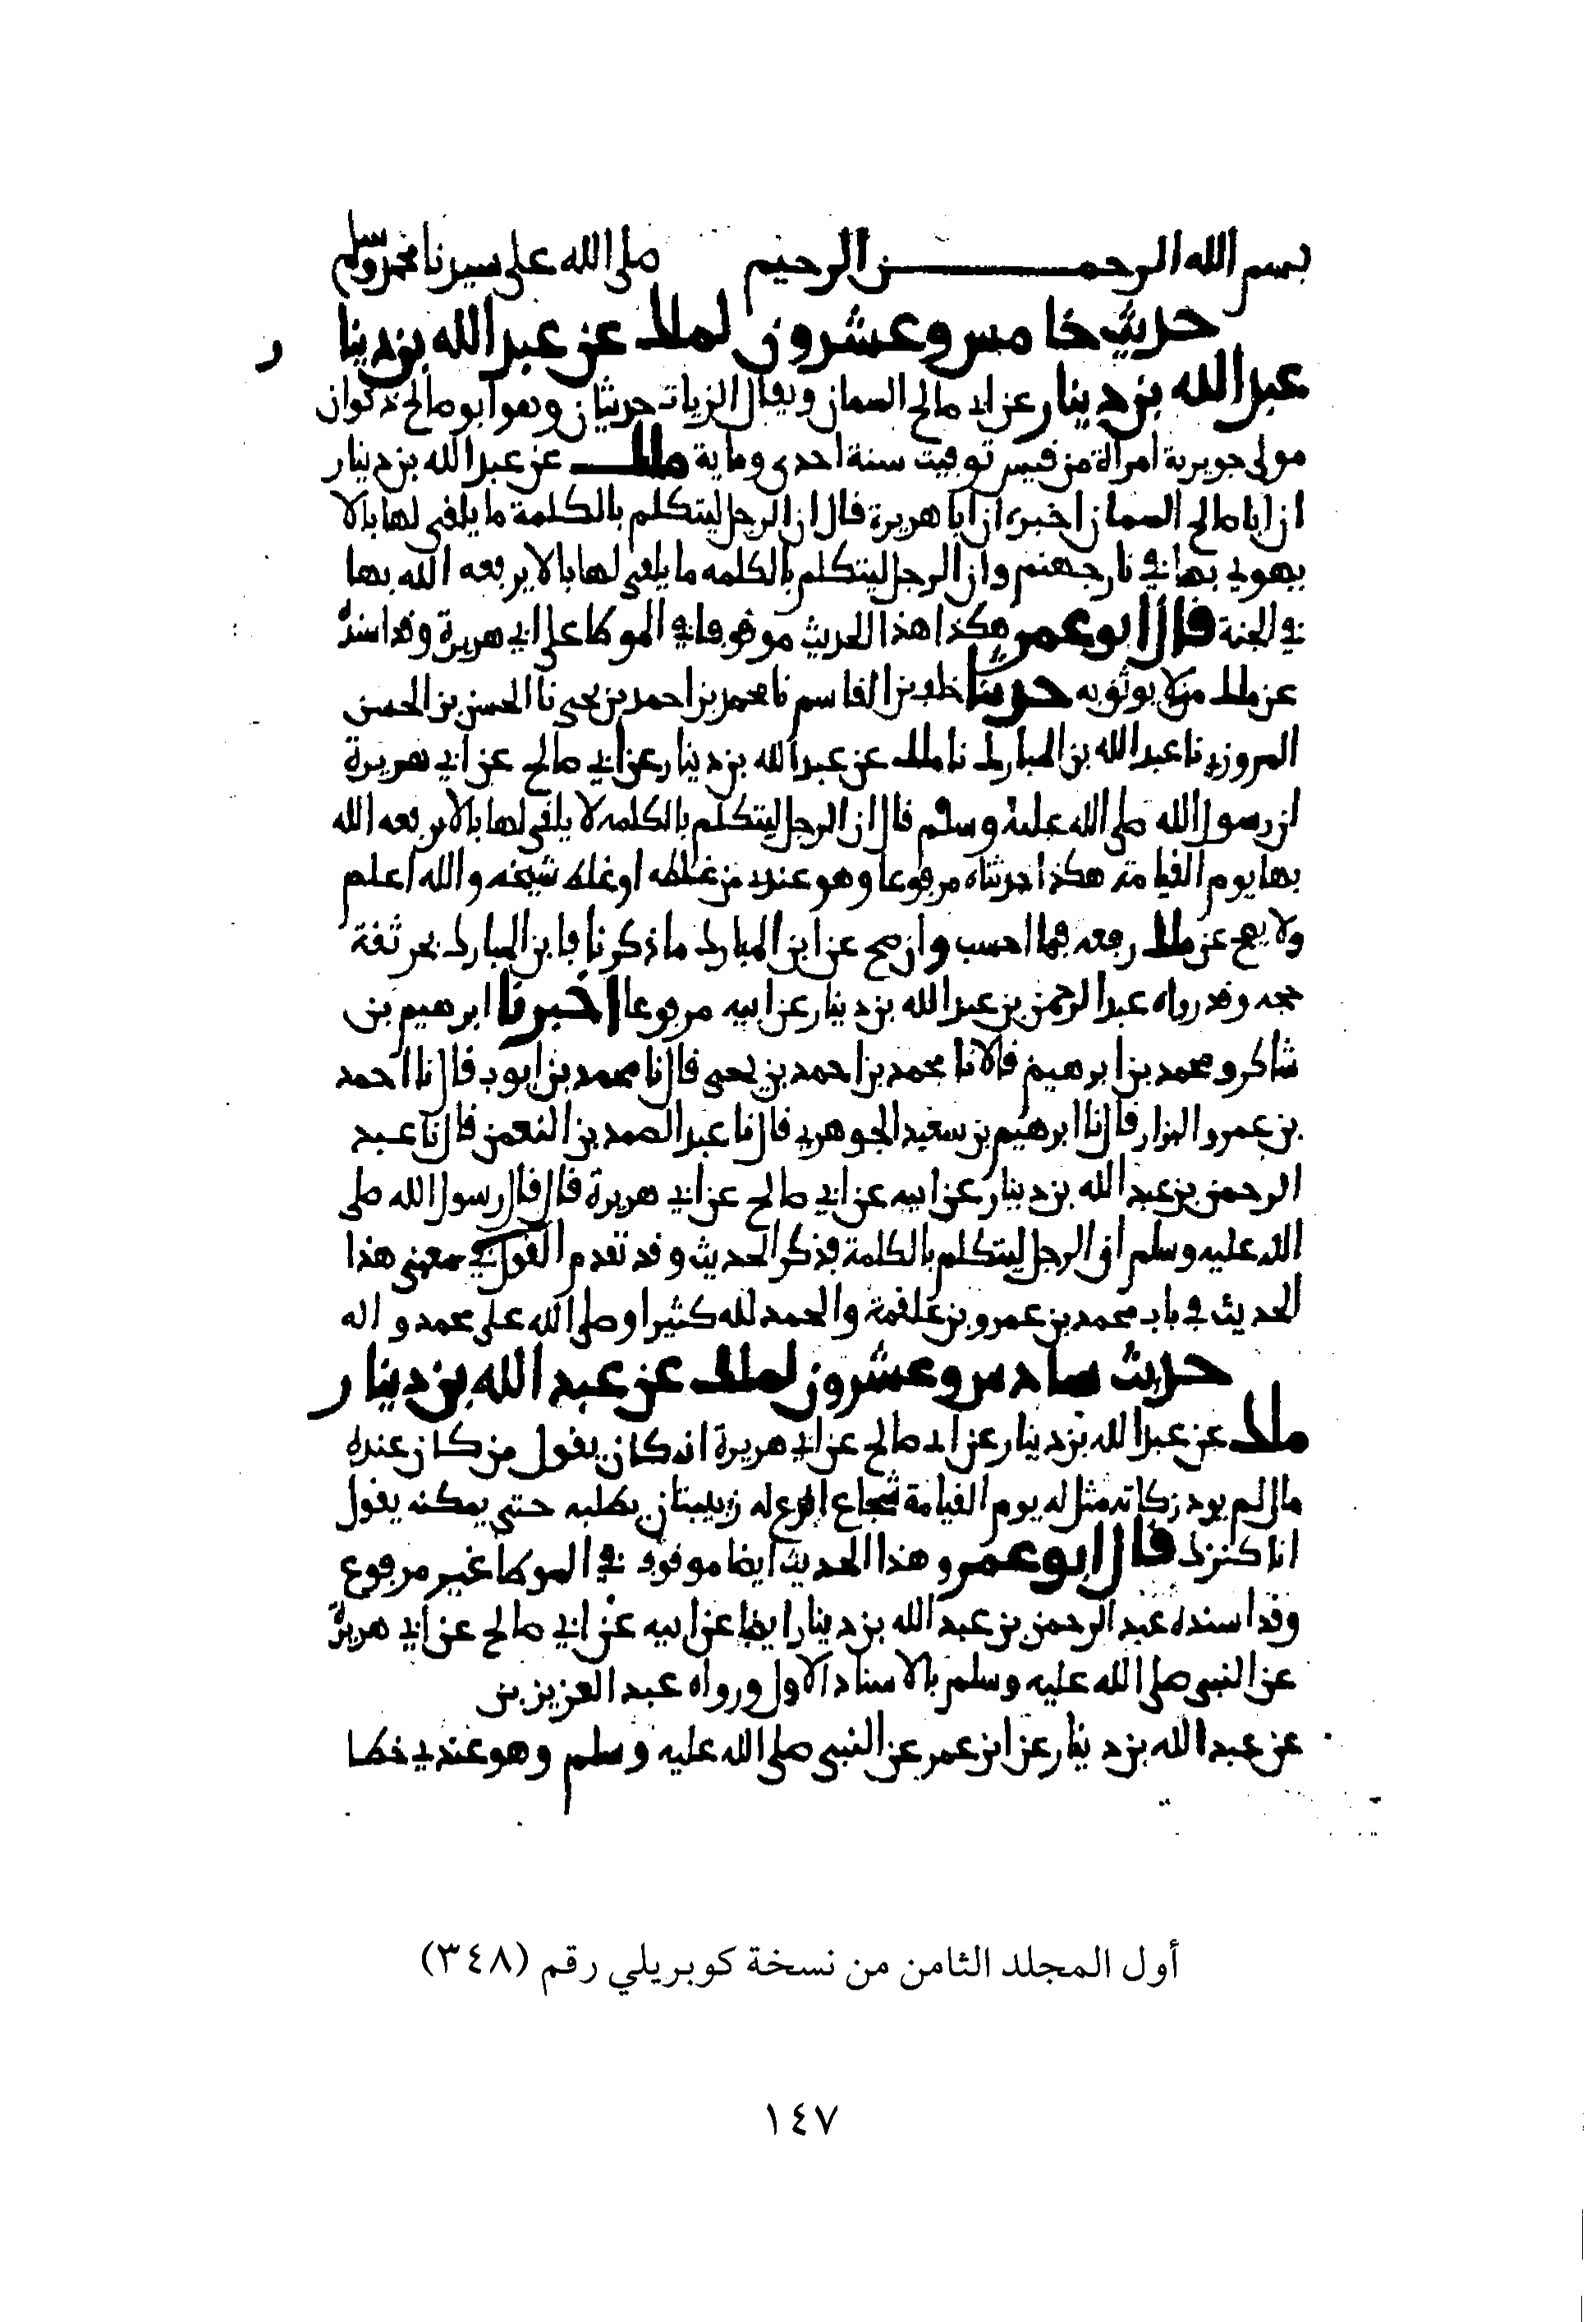 بسم الله الرحمن الرحيم صلى الله على سيدنا محمد وسلم
حديث خامس وعشرون لملك عن عبد الله بن دينار
عبد الله بن دينار عن ابي صالح السمان ويقال الزيات حديثان وهو ابو صالح ذكوان
مولى جويرية امراة من قيس توفيت سنة احدى وماية ملك عن عبد الله بن دينار
ان ابا صالح السمان اخبره ان ابا هريرة قال ان الرجل ليتكلم بالكلمة ما يلقى لها بالا
يهوي بها في نار جهنم وان الرجل ليتكلم بالكلمه ما يلقى لها بالا يرفعه الله بها
في الجنة قال ابو عمر هكذا هذا الحديث موقوفا في الموطا على ابي هريرة وقد اسنده
عن ملك من لا يوثق به حدثنا خلف بن القاسم نا محمد بن احمد بن يحيى نا الحسن بن الحسن
المروزي نا عبد الله بن المبارك نا ملك عن عبد الله بن دينار عن ابي صالح عن ابي هريرة
ان رسول الله صلى الله عليه وسلم قال ان الرجل ليتكلم بالكلمه لا يلقى لها بالا يرفعه الله
بها يوم القيامة هكذا حدثناه مرفوعا وهو عندي من غلطه او غلط شيخه والله اعلم
ولا يصح عن ملك رفعه فيما احسب وان صح عن ابن المبارك ما ذكرنا فابن المبارك بحر ثقة
حجه وقد رواه عبد الرحمن بن عبد الله بن دينار عن ابيه مرفوعا اخبرنا ابرهيم بن
شاكر ومحمد بن ابرهيم قالا نا محمد بن احمد بن يحيى قال نا محمد بن ايوب قال نا احمد
بن عمرو البزار قال نا ابرهيم بن سعيد الجوهري قال نا عبد الصمد بن النعمن قال نا عبد
الرحمن بن عبد الله بن دينار عن ابيه عن ابي صالح عن ابي هريرة قال قال رسول الله صلى
الله عليه وسلم ان الرجل ليتكلم بالكلمة فذكر الحديث وقد تقدم القول في معنى هذا
الحديث في باب محمد بن عمرو بن علقمة والحمد لله كثيرا وصلى الله على محمد واله
حديث سادس وعشرون لملك عن عبد الله بن دينار
ملك عن عبد الله بن دينار عن ابي صالح عن ابي هريرة انه كان يقول من كان عنده
مال لم يود زكاته مثل له يوم القيامة شجاع اقرع له زبيبتان يطلبه حتى يمكنه يقول
انا كنزك قال ابو عمر وهذا الحديث ايضا موقوف في الموطا غير مرفوع
وقد اسنده عبد الرحمن بن عبد الله بن دينار ايضا عن ابيه عن ابي صالح عن ابي هريرة
عن النبي صلى الله عليه وسلم بالاسناد الاول ورواه عبد العزيز بن
عن عبد الله بن دينار عن ابن عمر عن النبي صلى الله عليه وسلم وهو عندي خطا
أول المجلد الثامن من نسخة كوبريلي رقم (٣٤٨)
١٤٧